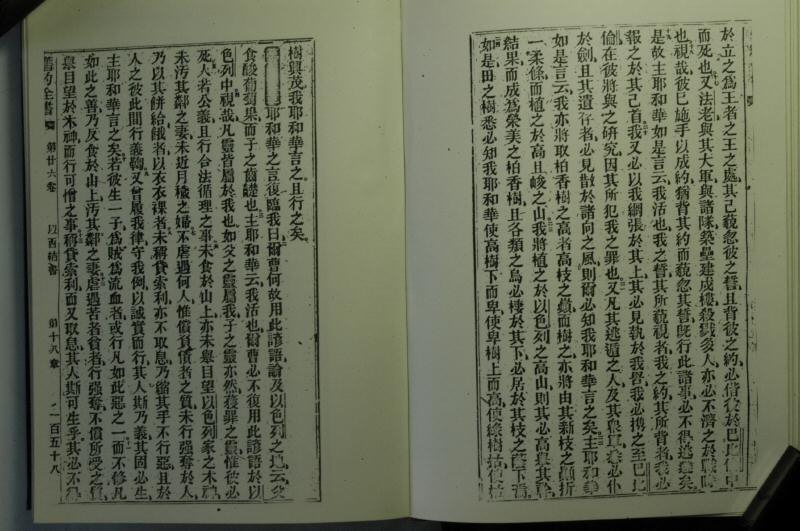 於立之為王者之王之處其己藐忽彼之誓且背彼之約必偕彼於巴比倫中
而死也又法老與其大軍與諸隊築壘建成樓殺戮多人亦必不濟之於戰陣
也視哉彼已施手以成約猶背其約而藐忽其誓旣行此諸事必不得逃避矣
是故主耶和華如是言云我活也我之誓其所藐視者我之約其所背者我必
報之於其己首我又必以我網張於其上其必見執於我罟我必携之至巴比
倫在彼將與之研究因其所犯我之罪也又凡其逃遁之人及其衆軍必仆
於劍且其遺存者必見散於諸向之風則爾必知我耶和華言之矣主耶和華
如是言云我亦將取柏香樹之高者高枝之顚而樹之亦將由其新枝之顚折
一柔條而植之於高且峻之山我將植之於以色列之高山則其必高舉其幹
結果而成為榮美之柏香樹且各類之鳥必棲於其下必居於其枝之蔭下焉
如是田之樹悉必知我耶和華使高樹下而卑使卑樹上而高使綠樹枯
樹興茂我耶和華言之且行之矣
耶和華之言復臨我曰爾曹何故用此諺語論及以色列之地云父
食酸葡萄果而子之齒齼也主耶和華云我活也爾曹必不復用此諺語於以
色列中視哉凡靈皆屬於我也如父之靈屬我子之靈亦然獲罪之靈惟彼必
死人若公義且行合法循理之事未食於山上亦未舉目望以色列家之木神
未汚其鄰之妻未近月穢之婦不虐遇何人惟償負債者之質未行强奪於人
乃以其餅給餓者以衣衣裸者未稱貸索利亦不取息乃縮其手不行惡且於
人之彼此間行義鞫又曾履我律守我例以誠實而行其人斯乃義其固必生
主耶和華言之矣若彼生一子為賊為流血者或行凡如此惡之一而不修凡
如此之善乃反食於山上汚其鄰之妻虐遇苦者貧者行强奪不償所受之質
舉目望於木神而行可憎之事稱貸索利而又取息其人斯可生乎其必不得
舊約全書 第廿六卷 以西結書 第十八章 一百五十八